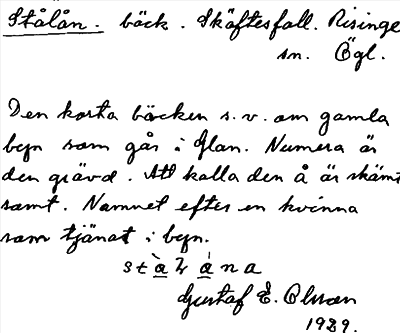 Stålån. bäck. Skäftesfall. Risinge
sn. Ögl.
Den korta bäcken s.v. om gamla
byn som går i Glan. Numera är
den grävd. Att kalla den å är skämt
samt. Namnet efter en kvinna
som tjänat i byn.
Gustaf E. Olsson
1929.